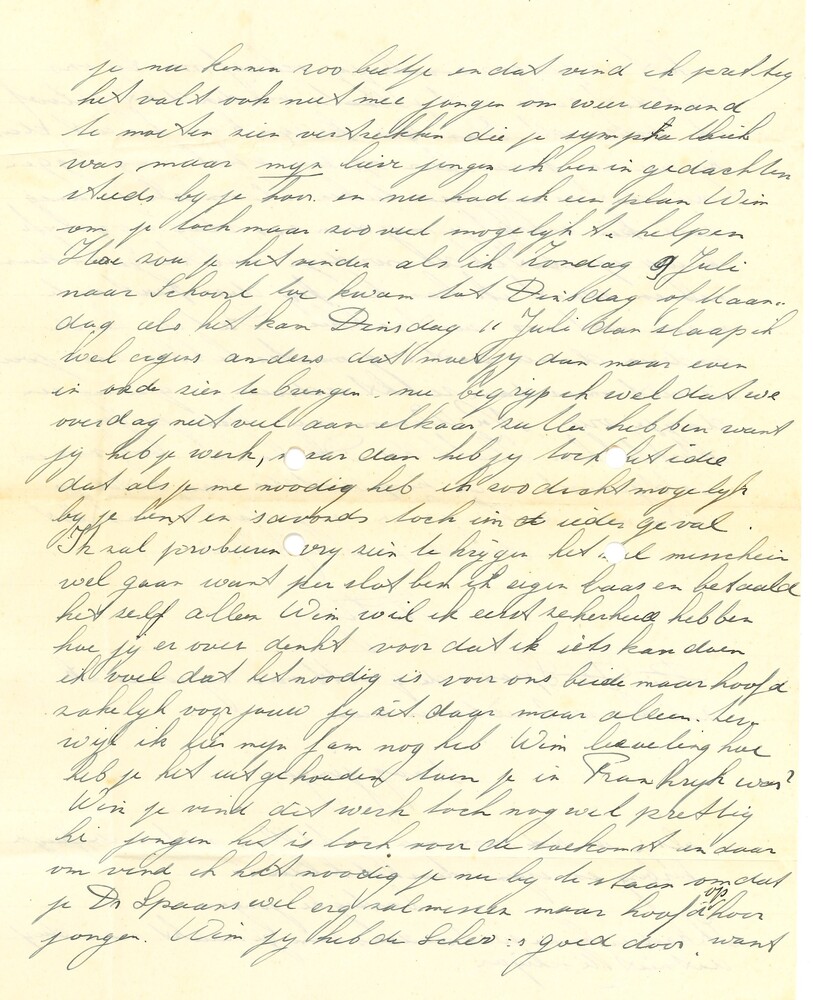 je nu kennen zoo beetje en dat vind ik prettig
het valt ook niet mee jongen om weer iemand
te moeten zien vertrekken die je sympathiek
was maar mijn lieve jongen ik ben in gedachten
steeds by je hoor. en nu had ik een plan Wim
om je toch maar zooveel mogelyk te helpen
Hoe zou je het vinden als ik Zondag 9 Juli
naar Schoorl toe kwam tot Dinsdag of Maan-
dag als het kan Dinsdag 11 Juli dan slaap ik
wel ergens anders dat moet jy dan maar even
in orde zien te brengen. nu begryp ik wel dat we
overdag niet veel aan elkaar zullen hebben want
jy heb je werk, maar dan heb jy toch het idee
dat als je me noodig heb ik zoo dicht mogelyk
by je bent en 'savonds toch in ieder geval.
Ik zal proberen vry zien te krygen het zal misschien
wel gaan want per slot ben ik eigen baas en betaald
het self alleen Wim wil ik eerst zekerheid hebben
hoe jy er over denkt voor dat ik iets kan doen
ik voel dat het noodig is voor ons beide maar hoofd
zakelyk voor jouw jy zit daar maar alleen. ter-
wijl ik hier myn fam nog heb Wim lieveling hoe
heb je het uitgehouden toen je in Frankryk was?
Wim je vind dit werk toch nog wel prettig
hè jongen het is toch voor de toekomst en daar
om vind ik het noodig je nu by te staan omdat
je Dr Spaans wel erg zal missen maar hoofd op hoor
jongen. Wim jy heb de goed door, want